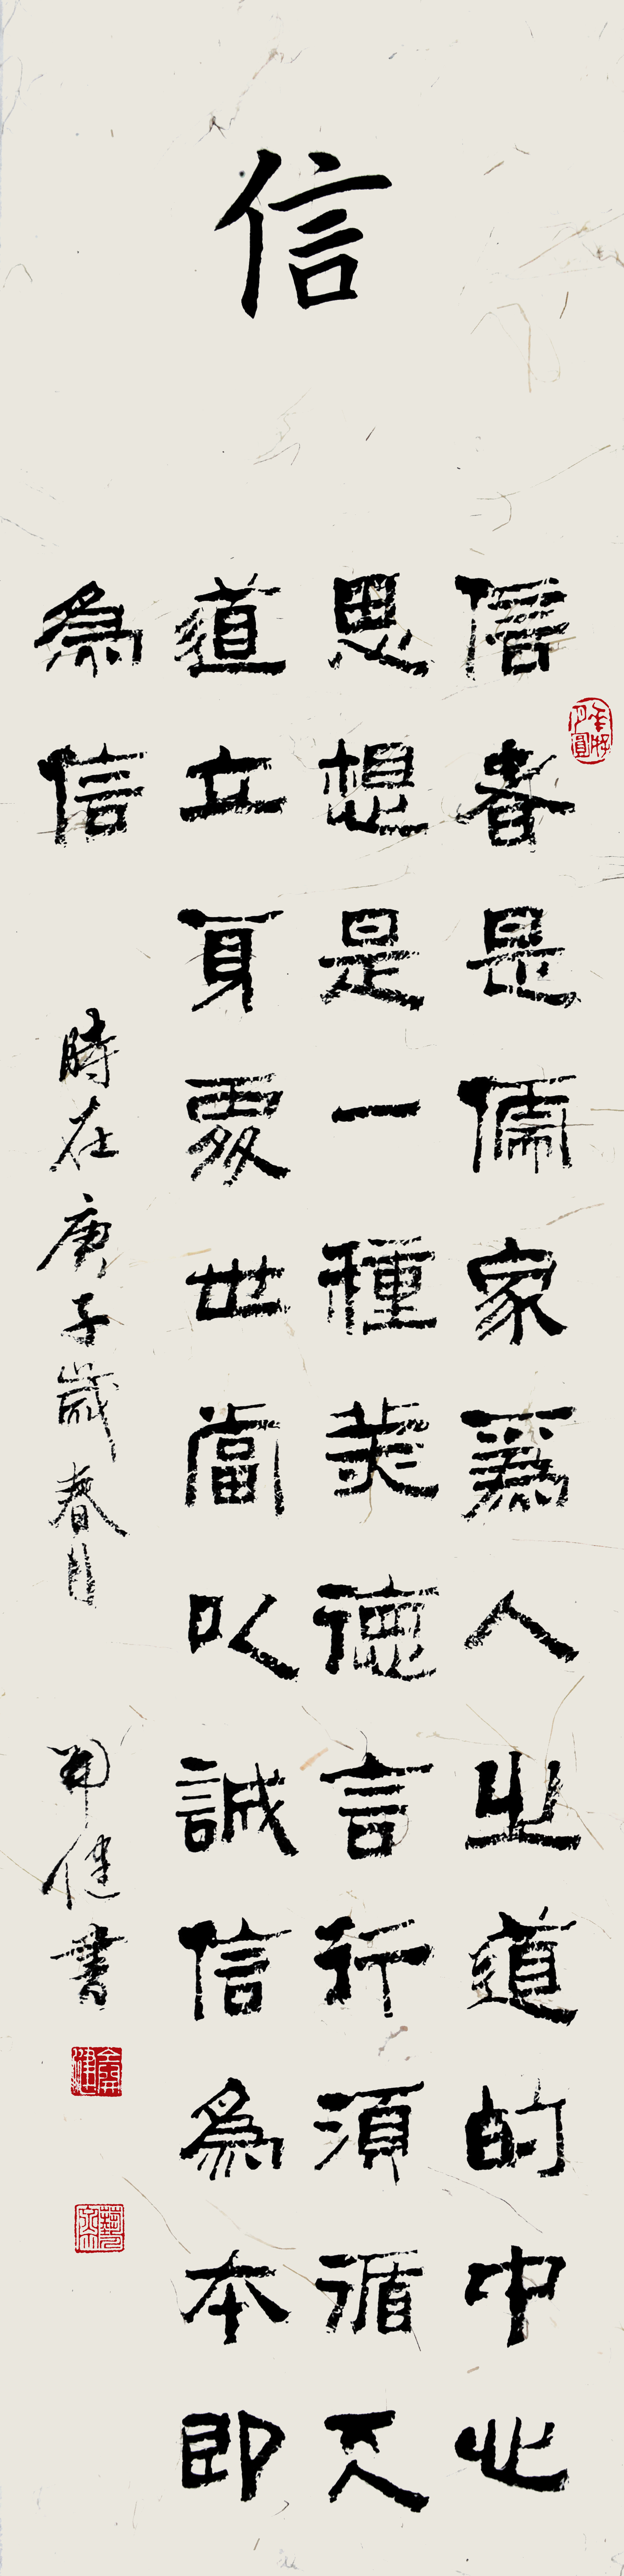 信
信者是儒家為人之道的中心
思想是一種美德言行須循天
道立身處世當以誠信為本即
為信
時在庚子歲春月
健書